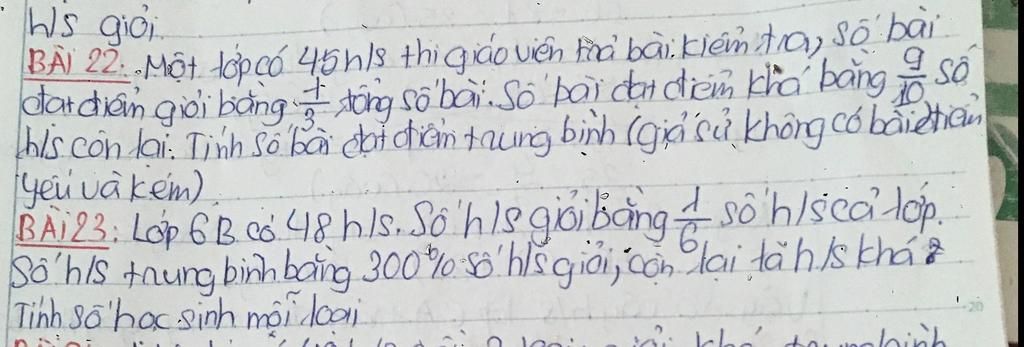 h/s giỏi.
BÀI 22: Một lớp có 45 h/s thi giáo viên trả bài kiểm tra, số bài
đạt điểm giỏi bằng 1/3 tổng số bài. Số bài đạt điểm khá bằng 9/10 số
h/s còn lại. Tính số bài đạt điểm trung bình (giả sử không có bài điểm
yếu và kém)
BÀI 23: Lớp 6B có 48 h/s. Số h/s giỏi bằng 1/6 số h/s cả lớp.
Số h/s trung bình bằng 300% số h/s giỏi, còn lại là h/s khá
Tính số học sinh mỗi loại